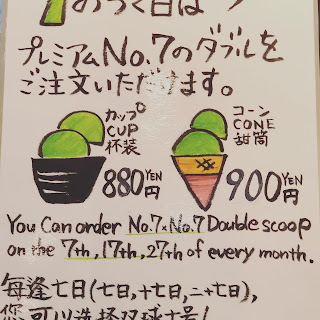 7のつく日は
プレミアムNo.7のダブルを
ご注文いただけます。
カップ
CUP
杯装
880YEN円
コーン
CONE
甜筒
900YEN円
You Can order No.7×No.7 Double scoop
on the 7th, 17th, 27th of every month.
每逢七日(七日,十七日,二十七日),
您可以选择双球七号!